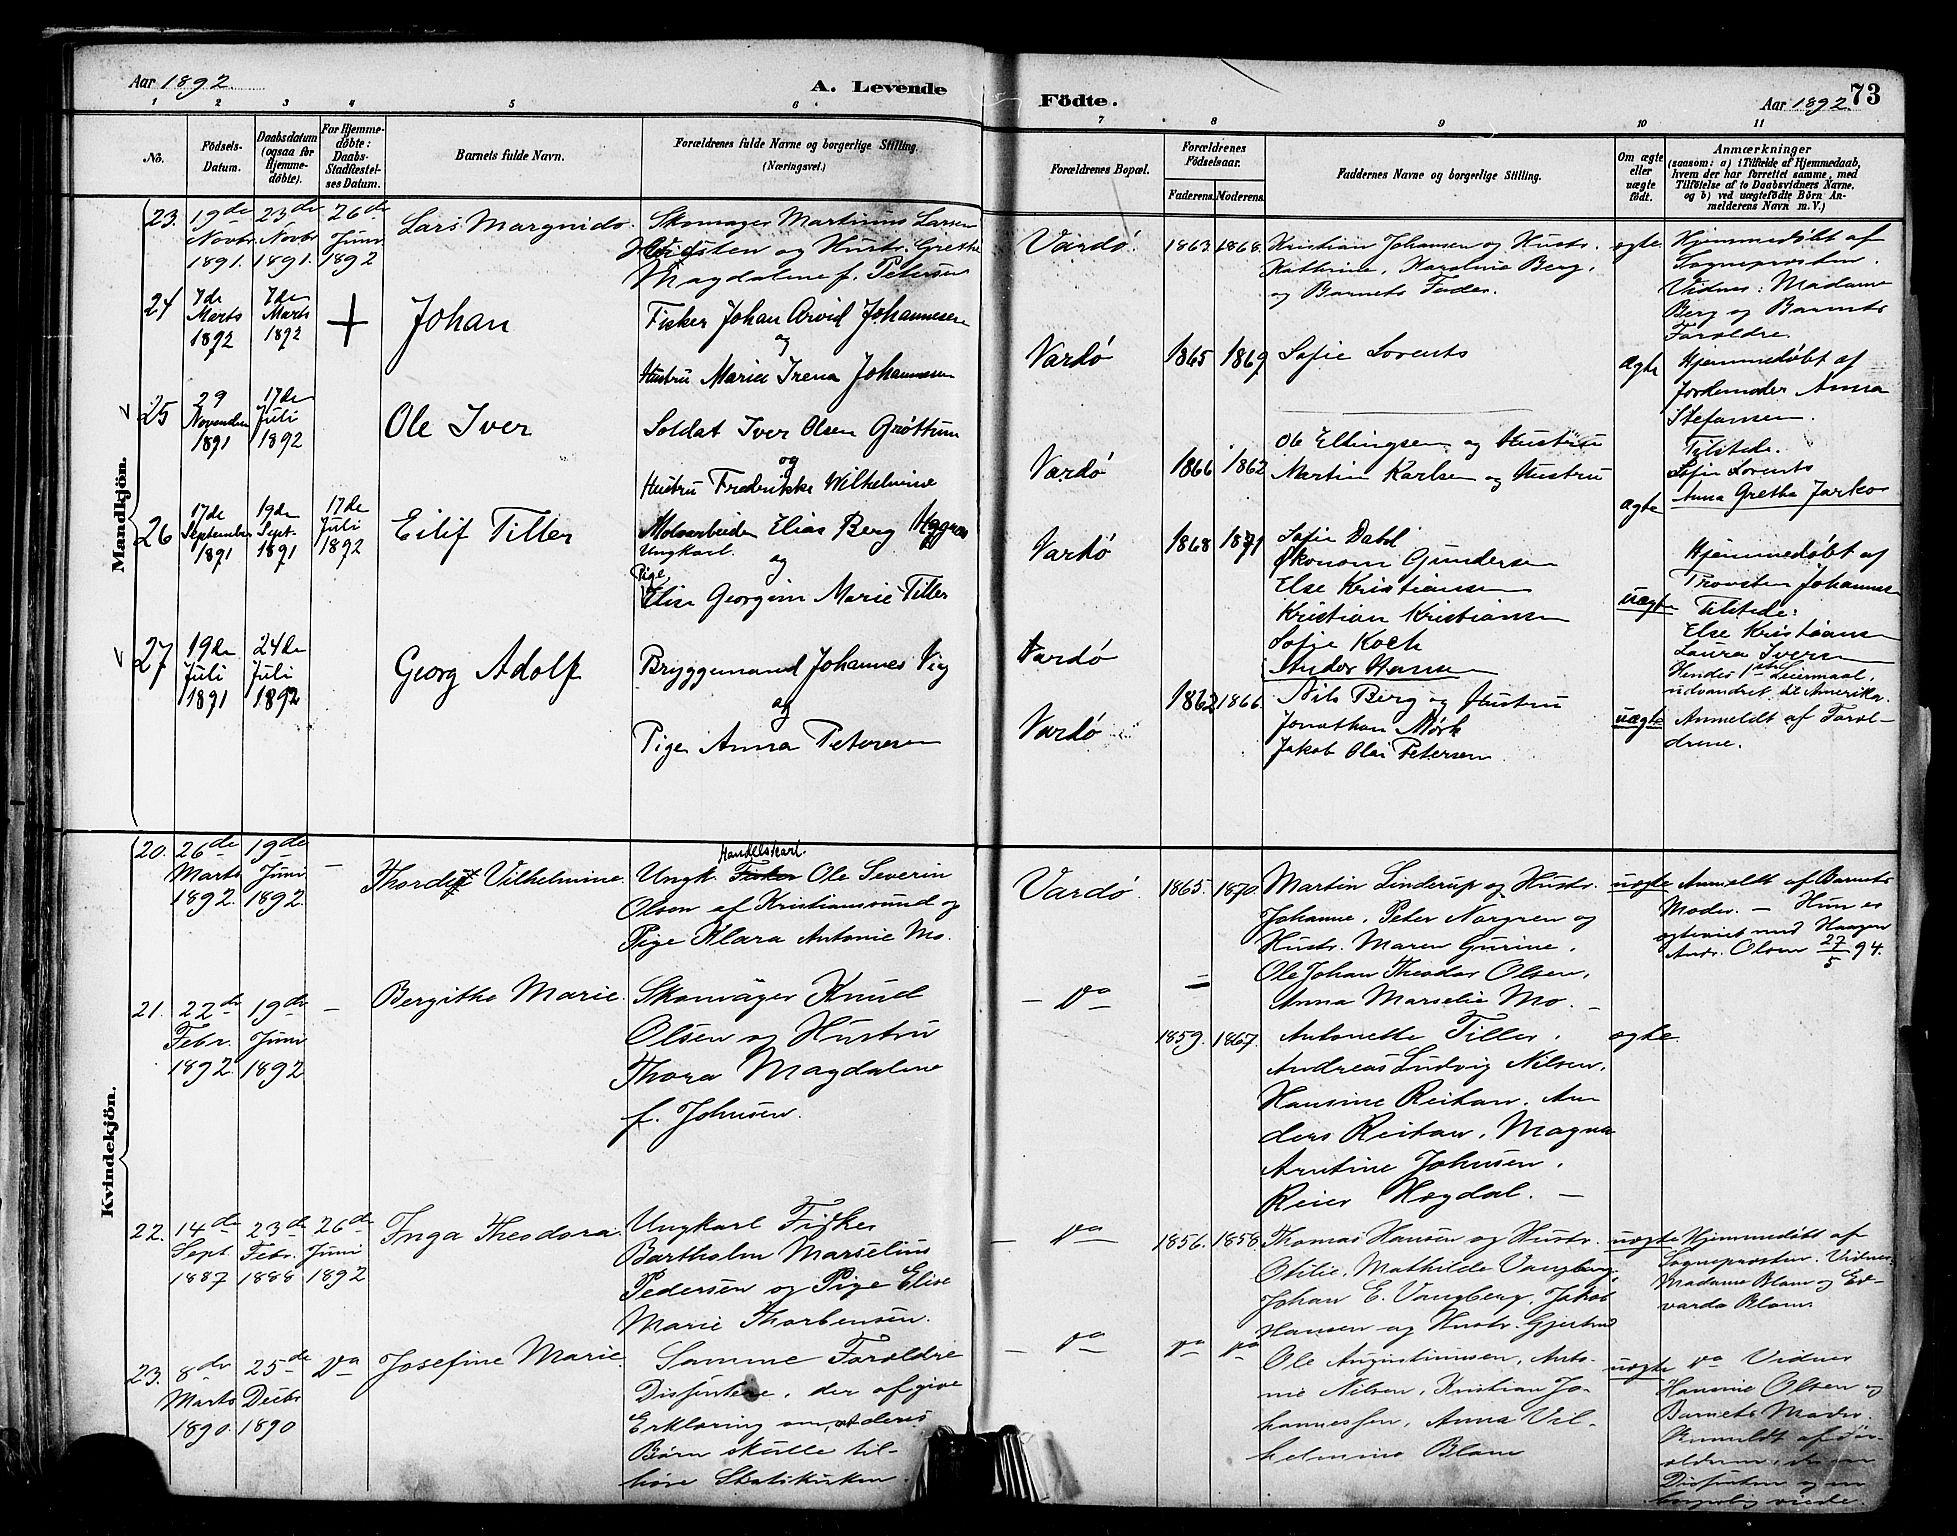 Aar 1892.
A. Levende
Födte.
Aar 1892.
73
1 2 3 4 5 6 7 8 9 10 11
No.
Födsels-
Datum.
Daabsdatum
(ogsaa for
Hjemme-
döbte).
For Hjemme-
döbte:
Daabs-
Stadfæstel-
ses Datum.
Barnets fulde Navn.
Forældrenes fulde Navne og borgerlige Stilling.
(Næringsvei.)
Forældrenes Bopæl.
Forældrenes
Födselsaar.
Faderens. Moderens.
Faddernes Navne og borgerlige Stilling.
Om ægte
eller
uægte
födt.
Anmærkninger
(saasom: a) i Tilfælde af Hjemmedaab,
hvem der har forrettet samme, med
Tilföielse af to Daabsvidners Navne.
og b) ved uægtefödte Börn An-
melderens Navn m. V.)
Mandkjön.
23.
19de
Novbr
1891.
23de
Novbr
1891.
26de
Juni
1892
Lars Margnido.
Skomager Martinus Larsen
og Hustr. Grethe
Magdalene f. Petersen
Vardø.
1863. 1868.
Kristian Johansen og Hustr.
Kathrine, Karoline Berg,
og Barnets Fader.
ægte.
Hjemmedøbt af
Sogneprosten.
Vidner: Madame
Berg og Barnets
Forældre.
24
7de
Marts
1892
7de
Marts
1892
+
Johan
Fisker Johan Arvid Johannesen
og
Hustru Marie Irena Johannesen
Vardø
1865 1869
Sofie Lorents
ægte
Hjemmedøbt af
Jordemoder Anna
Stefansen.
Tilstede.
Sofie Lorents
Anna Grethe Jarko
25
29
Novemden
1891
17de
Juli
1892
Ole Iver
Soldat Iver Olsen Grøttum
og
Hustru Fredrikke Wilhelmine
Vardø
1866 1862
Ole Ellingsen og Hustru
Martin Karlsen og Hustru
ægte
26
17de
September
1891
19de
Sept.
1891
17de
Juli
1892
Eilif Tiller
Elias Berg
Ungkarl.
og
Pige,
Elise Georgine Marie Tiller
Vardø
1868 1871
Sofie Dahl
Økonom Gundersen
Else Kristiansen
Kristian Kristiansen
Sofie Koch
Ander Hansen
uægte
Hjemmedøbt af
Provsten Johannesen
Tilstede:
Else Kristiansen
Laura Iversen
Hendes 1ste Leiermaal,
udvandret til Amerika.
27
19de
Juli
1891
24de
Juli
1892
Georg Adolf
Bryggemand Johannes Vig
og
Pige Anna Petersen
Vardø
Vardø
1862 1866.
Nils Berg og Hustru
Jonathan Mørk
Jakob Olai Petersen
uægte
Anmeldt af Foræl-
drene.
Kvindekjön.
20.
26de
Marts
1892.
19de
Juni
1892.
—
Vilhelmine.
Handelskarl.
Ungk. Fisker Ole Severin
Olsen af Kristiansund og
Pige Klara Antonie Mo.
Vardø.
1865. 1870.
Martin Linderup og Hustr.
Johanne, Peter Norgren og
Hustr. Maren Gurine,
Ole Johan Theodor Olsen,
Anna Marselie Mo. —
uægte
Anmeldt af Barnets
Moder. — Hun er
ægteviet med Haagen
Andr. Olsen 27/5 94.
21.
22de
Febr.
1892.
19de
Juni
1892
—
Bergithe Marie.
Knud
Olsen og Hustru
Thora Magdalene
f. Johnsen.
— Do
1859. 1867.
Antonette Tiller,
Andreas Ludvig Nilsen,
Hansine Reitan, An-
ders Reitan, Magna
Arntine Johnsen,
Reier Høgdal. —
ægte
22.
14de
Sept
1887
23de
Febr.
1888
26de
Juni
1892
Inga Theodora.
Ungkarl Fisker
Bartholm Marselius
Pedersen og Pige Elise
Marie Thorbensen.
— Do
1856. 1858.
Thomas Hansen og Hustr.
Otilie, Mathilde Vangberg,
Johan E. Vangberg, Jakob
Hansen og Hustr. Gjertrud
uægte
Hjemmedøbt af
Sogneprosten. Vidner:
Madame Blom og Ed-
varda Blom.
23.
8de
Marts
1890.
25de
Decbr
1890
Do
Josefine Marie.
Samme Forældre
Dissentere, der afgive
Erklæring om, at deres
Børn skulle til-
høre Statskirken.
— Do
Do Do
Ole Augustinussen, Anto-
nie Nilsen, Kristian Jo-
hannessen, Anna Vil-
helmine Blom
uægte
Do Vidner
Hansine Olsen og
Barnets Moder.
Anmeldt af For-
ældrene, der er
Dissentere og er
borgerlig viede.